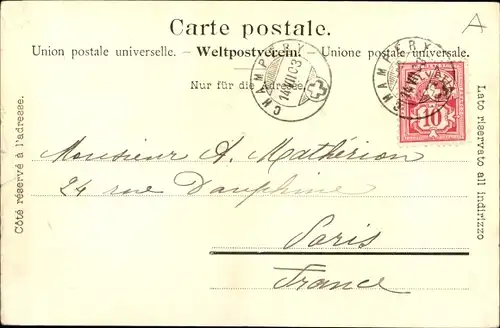 A
Carte postale.
Union postale universelle. – Weltpostverein. – Unione postale universale.
Nur für die Adresse.
CHAMPÉRY
14.VII.03
CHAMPÉRY
14.VII.03
HELVETIA
10
Côté réservé à l'adresse.
Lato riservato all indirizzo
Monsieur A. Mathérion
24 rue Dauphine
Paris
France